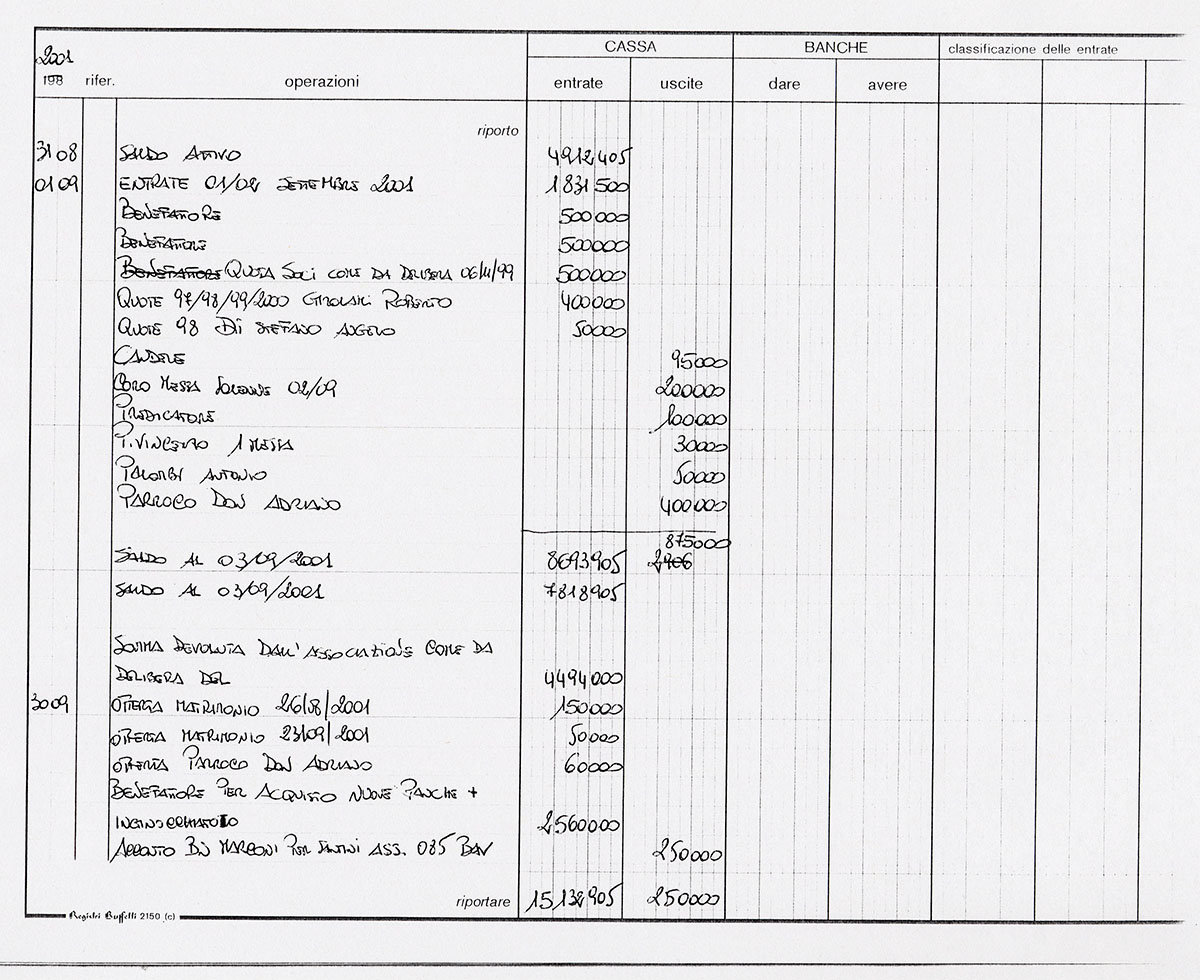 2001
CASSA BANCHE classificazione delle entrate
198 rifer. operazioni entrate uscite dare avere
riporto
3108 SALDO ATTIVO 4912405
0109 ENTRATE 01/02 SETTEMBRE 2001 1831500
BENEFATTORE 500000
BENEFATTORE 500000
BENEFATTORE QUOTA SOCI COME DA DELIBERA 06/11/99 500000
QUOTE 97/98/99/2000 ROBERTO 400000
QUOTE 98 DI STEFANO ANGELO 50000
CANDELE 95000
CORO MESSA SOLENNE 02/09 200000
PREDICATORE 100000
P. VINCENZO 1 MESSA 30000
PALOMBI ANTONIO 50000
PARROCO DON ADRIANO 400000
875000
SALDO AL 03/09/2001 8693905
SALDO AL 03/09/2001 7818905
SOMMA DEVOLUTA DALL'ASSOCIAZIONE COME DA
DELIBERA DEL 4494000
3009 OFFERTA MATRIMONIO 26/08/2001 150000
OFFERTA MATRIMONIO 23/09/2001 50000
OFFERTA PARROCO DON ADRIANO 60000
BENEFATTORE PER ACQUISTO NUOVE PANCHE +
INGINOCCHIATOIO 2560000
ACCONTO MARCONI PER SANTINI ASS. 085 250000
riportare 15132905 250000
Registri Buffetti 2150 (c)